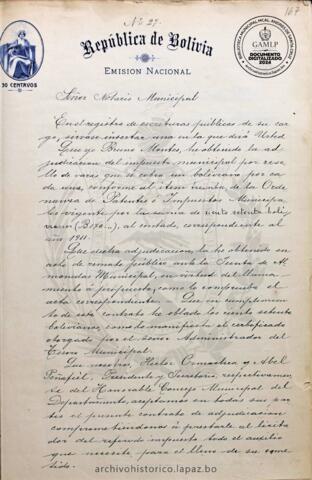 Nº 27.
167
República de Bolivia
EMISION NACIONAL
30 CENTAVOS
BIBLIOTECA MUNICIPAL MCAL. ANDRÉS DE SANTA CRUZ
GAMLP
DOCUMENTO
DIGITALIZADO
2024
Señor Notario Municipal
En el registro de escrituras públicas de su car-
go, sírvase insertar una en la que dirá Usted
Que yo Bruno Montes, he obtenido la ad-
judicacion del impuesto municipal por rese-
llo de varas que se cobra un boliviano por ca-
da una, conforme al item treinta de la Orde-
nanza de Patentes é Impuestos Municipa-
les vigente por la suma de ciento setenta boli-
vianos (Bs 170..), al contado, correspondiente al
año 1911.
Que dicha adjudicacion, la he obtenido en
acto de remate público ante la Junta de Al-
monedas Municipal, en virtud del llama-
miento á propuestas, como lo comprueba el
acta correspondiente. Que en cumplimien-
to de este contrato he oblado los ciento setenta
bolivianos, como lo manifiesta el certificado
otorgado por el Señor Administrador del
Tesoro Municipal.
Que nosotros, Ormachea y Abel
Peñafiel, Presidente y Secretario, respectivamen-
te del Honorable Concejo Municipal del
Departamento, aceptamos en todas sus par-
tes el presente contrato de adjudicacion
comprometiéndonos á prestarle al licita-
dor del referido impuesto todo el auxilio
que necesite para el lleno de su come-
tido.
archivohistorico.lapaz.bo